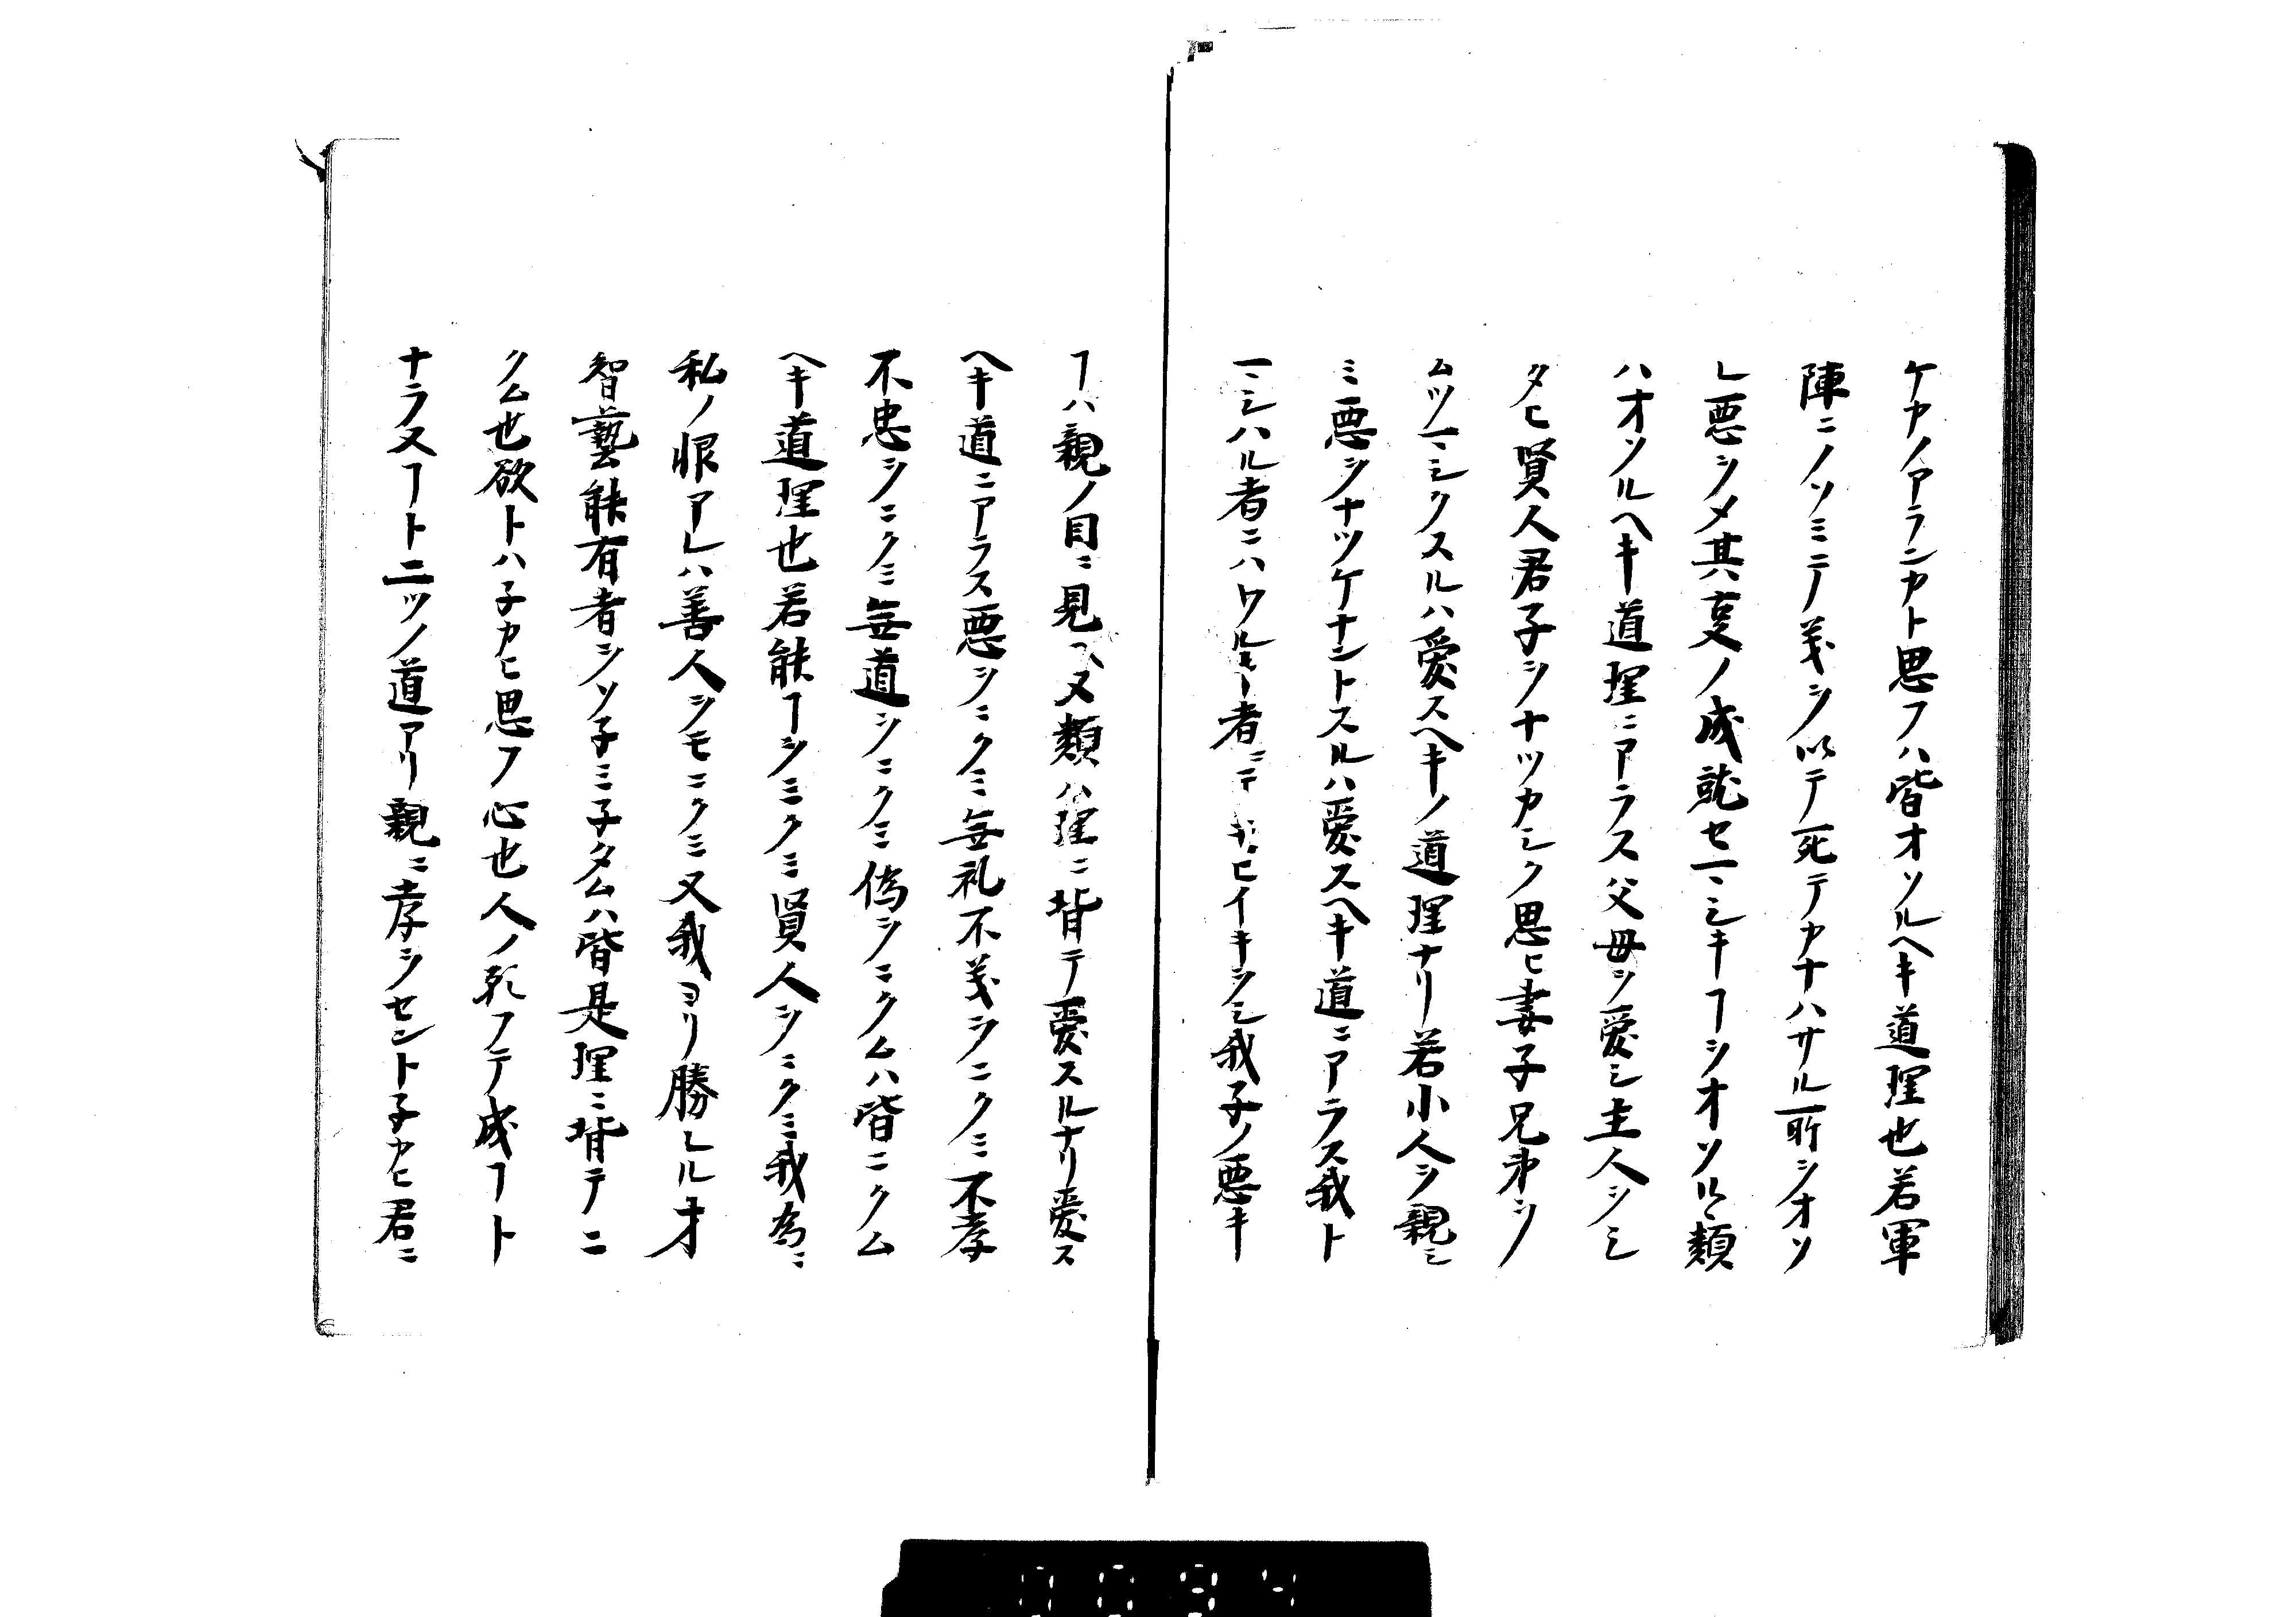 ケカノアランカト思フハ皆オソルヘキ道理也若軍
陣ニノソミニノ義ヲ以テ死テカナハサル所ヲオソ
レ悪ヲメ其事ノ成就セマシキヿヲオソルヽ類
ハオソルヘキ道理ニアラス父母ヲ愛シ主人ヲシ
タヒ賢人君子ヲナツカシク思ヒ妻子兄弟ヲ
ムツマシクスルハ愛スヘキノ道理ナリ若小人ヲ親シ
ミ悪ヲナツケナントスルハ愛スヘキ道ニアラス我ト
マシハル者ニハワルキ者ニテ ヒイキヲシ我子ノ悪キ
ヿハ親ノ目ニ見ヘヌ類ハ理ニ背テ愛スルナリ愛ス
ヘキ道ニアラス悪ヲニクミ無礼不義ヲニクミ不孝
不忠ヲニクミ無道ヲニクミ偽ヲニクムハ皆ニクム
ヘキ道理也若能ヿヲニクミ賢人ヲニクミ我為ニ
私ノ恨アレハ善人ヲモニクミ又我ヨリ勝レルオ
智藝能有者ヲソ子ミ子タムハ皆是理ニ背テニ
クム也欲トハ子カヒ思フ心也人ノ願フテ成ヿト
ナラヌヿト二ツノ道アリ親ニ孝ヲセント子カヒ君ニ